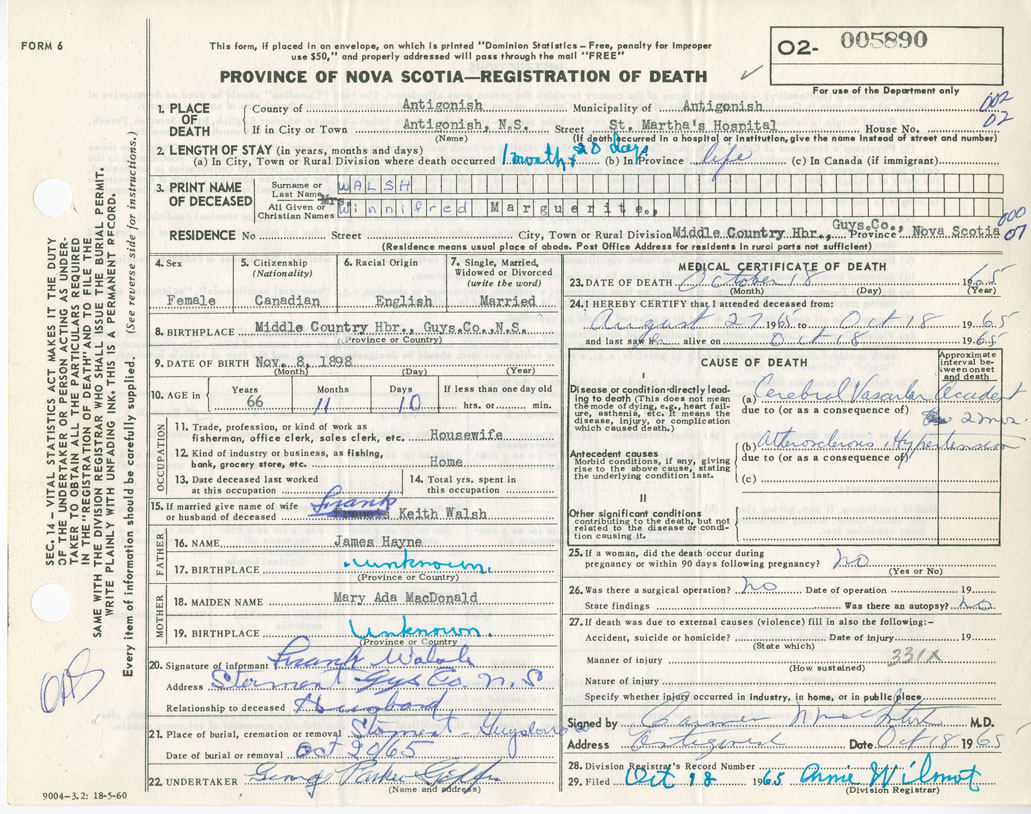 FORM 6
This form, if placed in an envelope, on which is printed "Dominion Statistics – Free, penalty for improper
use $50," and properly addressed will pass through the mail "FREE"
PROVINCE OF NOVA SCOTIA—REGISTRATION OF DEATH
O2- 005890
For use of the Department only
002
02
1. PLACE OF DEATH
County of Antigonish Municipality of Antigonish
If in City or Town Antigonish, N.S. Street St. Martha's Hospital House No.
(Name) (If death occurred in a hospital or institution, give the name instead of street and number)
2. LENGTH OF STAY (in years, months and days)
(a) In City, Town or Rural Division where death occurred 1 month + 20 days (b) In Province life (c) In Canada (if immigrant)
3. PRINT NAME OF DECEASED
Surname or Last Name WALSH
Mrs.
All Given or Christian Names Winnifred Marguerite.,
000
07
RESIDENCE No Street City, Town or Rural Division Middle Country Hbr., Guys.Co., Province Nova Scotia
(Residence means usual place of abode. Post Office Address for residents in rural parts not sufficient)
4. Sex
Female
5. Citizenship
(Nationality)
Canadian
6. Racial Origin
English
7. Single, Married,
Widowed or Divorced
(write the word)
Married
8. BIRTHPLACE Middle Country Hbr., Guys.Co., N.S.
(Province or Country)
9. DATE OF BIRTH Nov. 8, 1898
(Month) (Day) (Year)
10. AGE in
Years 66
Months 11
Days 10
If less than one day old
hrs. or min.
OCCUPATION
11. Trade, profession, or kind of work as
fisherman, office clerk, sales clerk, etc. Housewife
12. Kind of industry or business, as fishing,
bank, grocery store, etc. Home
13. Date deceased last worked
at this occupation
14. Total yrs. spent in
this occupation
15. If married give name of wife
or husband of deceased Frank Francis Keith Walsh
FATHER
16. NAME James Hayne
17. BIRTHPLACE unknown.
(Province or Country)
MOTHER
18. MAIDEN NAME Mary Ada MacDonald
19. BIRTHPLACE Unknown.
(Province or Country)
20. Signature of informant Frank Walsh
Address Stormont Gys Co. N.S
Relationship to deceased Husband
21. Place of burial, cremation or removal Stormont - Guysboro Co
Date of burial or removal Oct 20/65
22. UNDERTAKER George Parker Giffin
(Name and address)
9004-3.2: 18-5-60
MEDICAL CERTIFICATE OF DEATH
23. DATE OF DEATH October 18 1965
(Month) (Day) (Year)
24. I HEREBY CERTIFY that I attended deceased from:
August 27 1965 to Oct 18 1965
and last saw alive on Oct 18 1965
CAUSE OF DEATH
Approximate
interval be-
tween onset
and death
I
Disease or condition-directly lead-
ing to death (This does not mean
the mode of dying, e.g., heart fail-
ure, asthenia, etc. It means the
disease, injury, or complication
which caused death.)
(a) Cerebral Vascular Accident
due to (or as a consequence of) 2 mos.
Antecedent causes
Morbid conditions, if any, giving
rise to the above cause, stating
the underlying condition last.
(b) Atherosclerosis Hypertension
due to (or as a consequence of)
(c)
II
Other significant conditions
contributing to the death, but not
related to the disease or condi-
tion causing it.
25. If a woman, did the death occur during
pregnancy or within 90 days following pregnancy? no
(Yes or No)
26. Was there a surgical operation? no Date of operation 19
State findings Was there an autopsy? no
27. If death was due to external causes (violence) fill in also the following:-
Accident, suicide or homicide? Date of injury 19
(State which)
Manner of injury 331X
(How sustained)
Nature of injury
Specify whether injury occurred in industry, in home, or in public place
Signed by M.D.
Address Antigonish Date Oct 18 1965
28. Division Registrar's Record Number
29. Filed Oct 18 1965 Annie Wilmot
(Division Registrar)
SEC. 14 - VITAL STATISTICS ACT MAKES IT THE DUTY
OF THE UNDERTAKER OR PERSON ACTING AS UNDER-
TAKER TO OBTAIN ALL THE PARTICULARS REQUIRED
IN THE "REGISTRATION OF DEATH" AND TO FILE THE
SAME WITH THE DIVISION REGISTRAR WHO SHALL ISSUE THE BURIAL PERMIT.
WRITE PLAINLY WITH UNFADING INK. THIS IS A PERMANENT RECORD.
Every item of information should be carefully supplied. (See reverse side for instructions.)